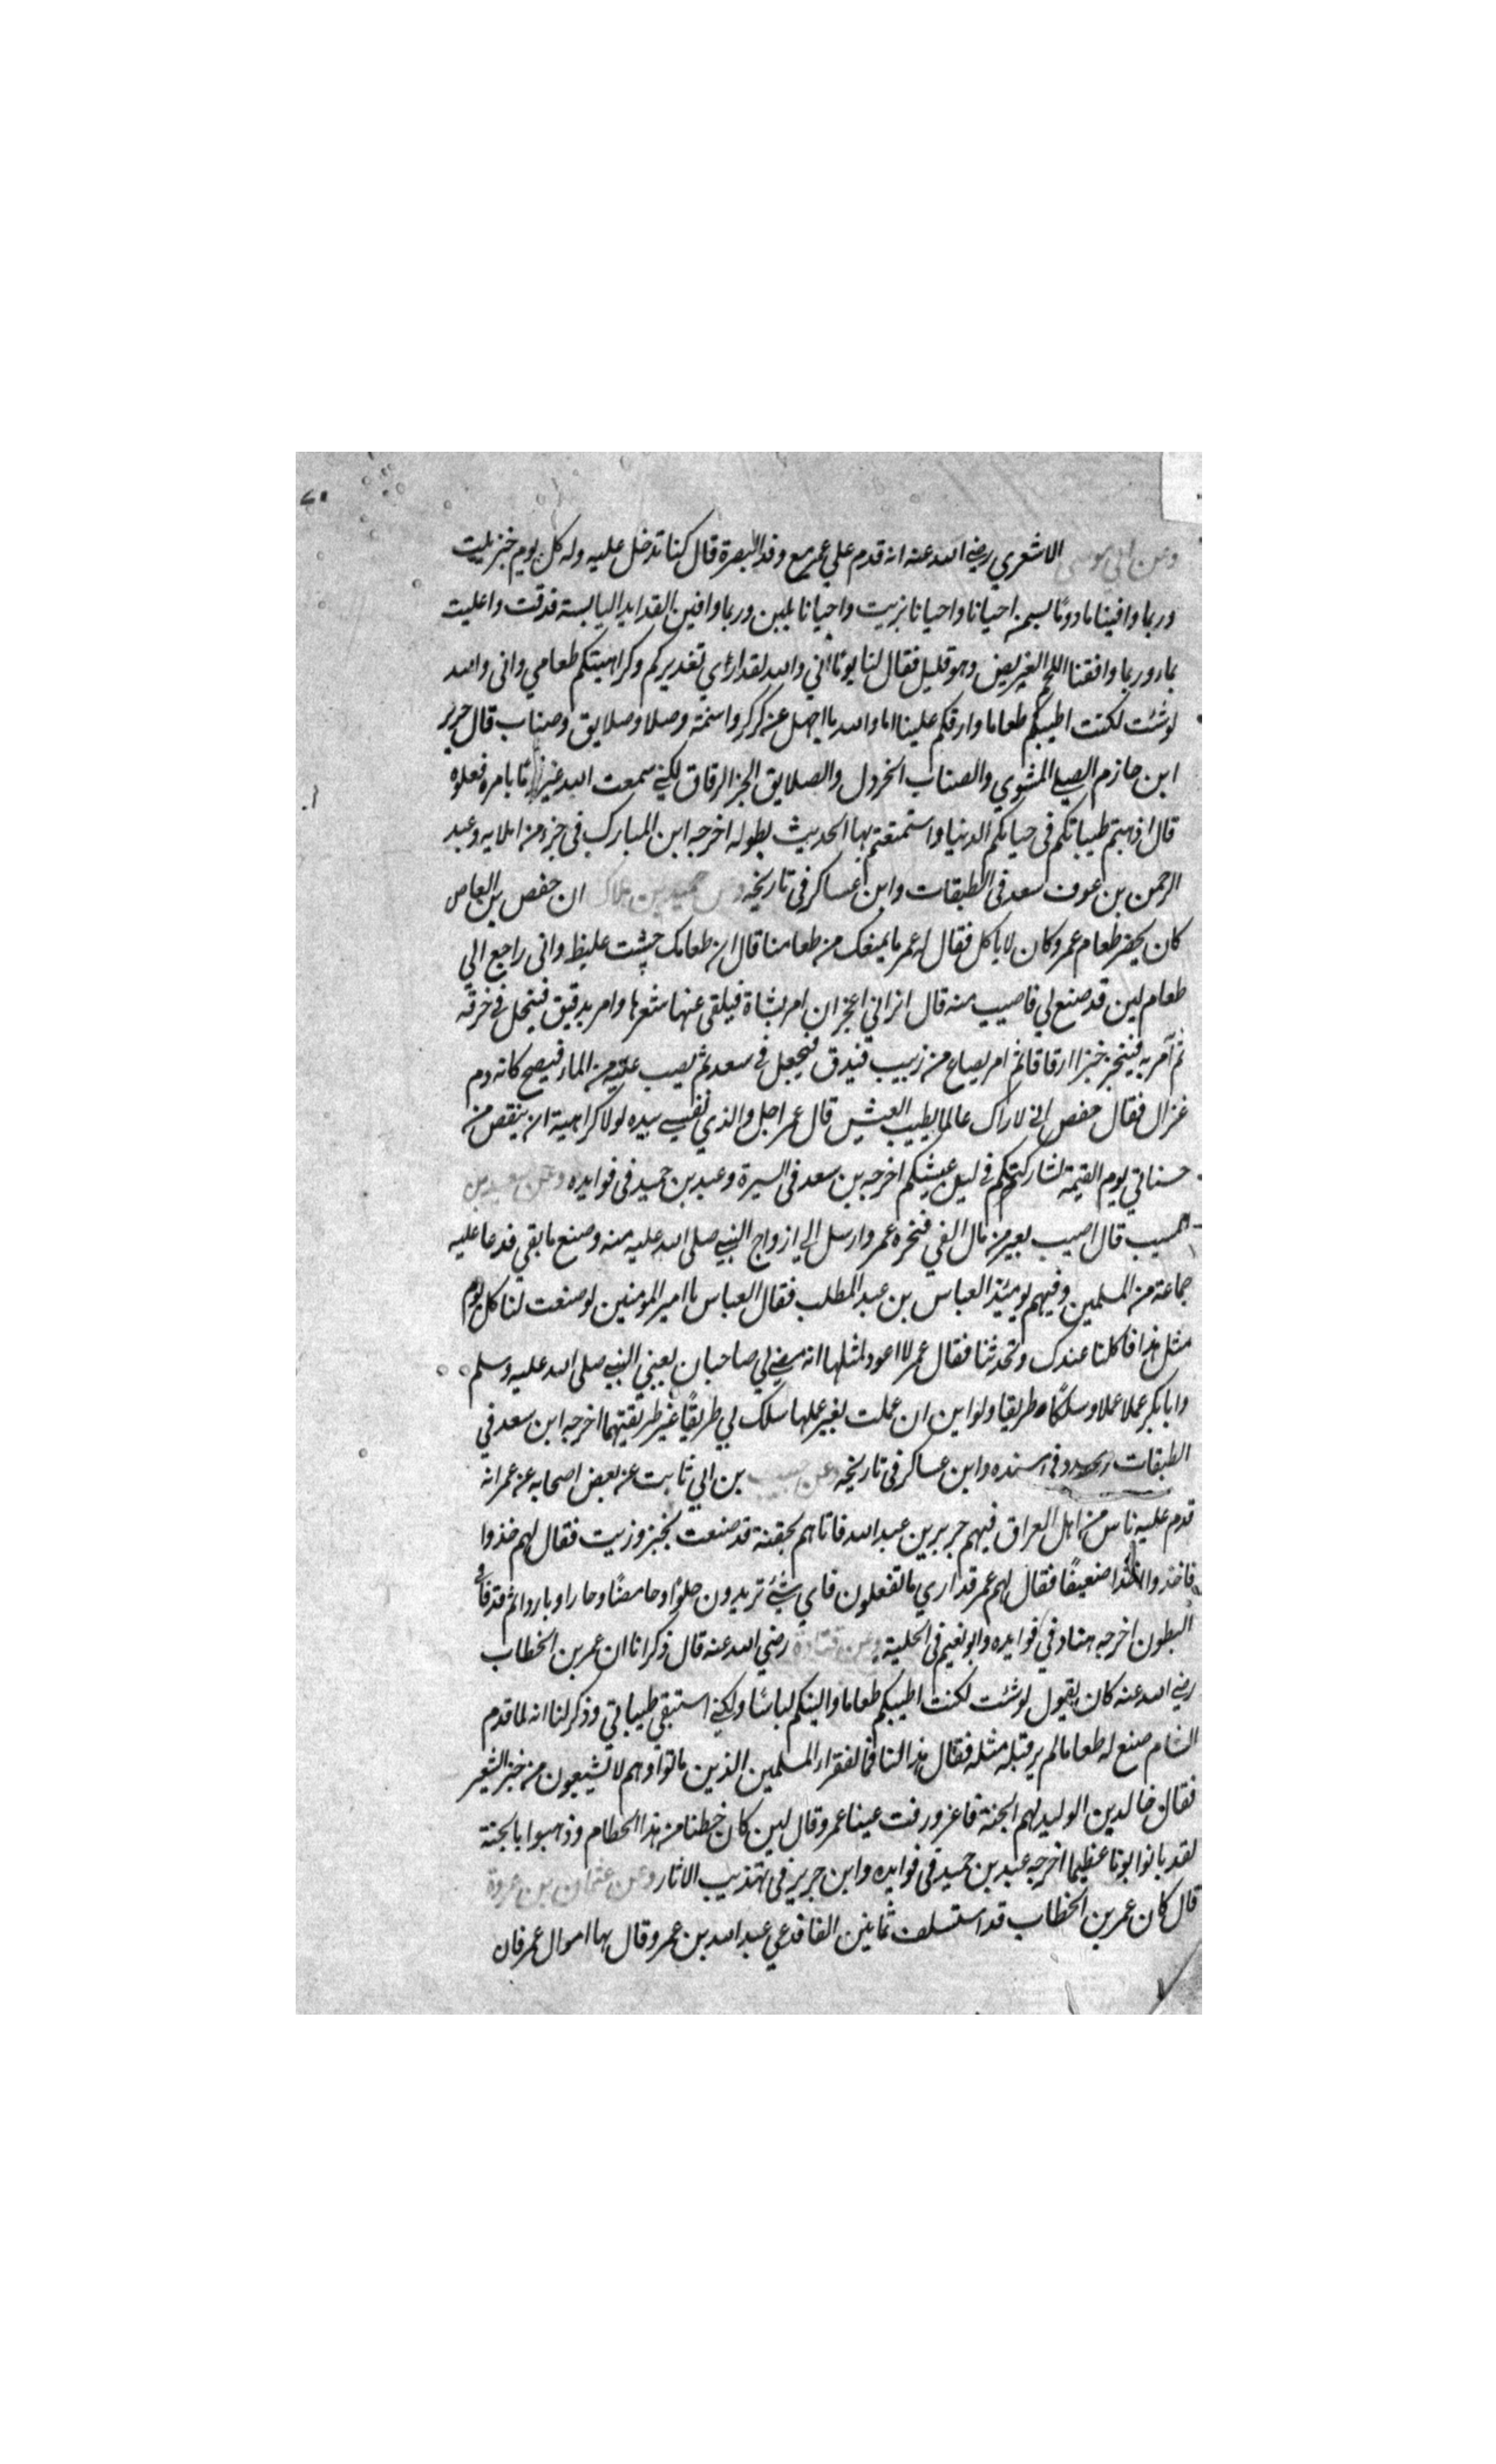 وعن ابي موسى الاشعري رضي الله عنه انه قدم علي عمر مع وفد البصرة قال كنا ندخل عليه وله كل يوم خبز يلت
وربما وافينا مادوما بسمن احيانا واحيانا بزيت واحيانا بلبن وربما وافين القدايد اليابسة قد دقت واغليت
بماء وربما وافقنا اللحم الغريض وهو قليل فقال لنا يوما اني والله لقد ارى تغديركم وكراهيتكم طعامي واني والله
لو شئت لكنت اطيبكم طعاما وارقكم علينا اما والله ما اجهل عن كركر واسنمة وصلا وصلايق وصناب قال جرير
ابن حازم الصلي المشوي والصناب الخردل والصلايق الخبز الرقاق لكني سمعت الله غير قوما بامر فعلوه
قال اذهبتم طيباتكم في حياتكم الدنيا واستمتعتم بها الحديث بطوله اخرجه ابن المبارك في جزء من املايه وعبد
الرحمن بن عوف سعد في الطبقات وابن عساكر في تاريخه وعن حميد بن هلال ان حفص بن العاص
كان يحضر طعام عمر وكان لا ياكل فقال له عمر ما يمنعك من طعامنا قال ان طعامك جشت غليظ واني راجع الي
طعام لين قد صنع لي فاصيب منه قال اتراني اعجز ان امر بشاة فيلقى عنها شعرها وامر بدقيق فينخل في خرقة
ثم آمر به فيخبز خبزا رقاقا ثم امر بصاع من زبيب فيدق فيجعل في سعد ثم يصب عليه من الماء فيصبح كانه دم
غزال فقال حفص اني لاراك عالما بطيب العيش قال عمر اجل والذي نفسي بيده لولا كراهية ان ينقص من
حسناتي يوم القيمة لشاركتكم في لين عيشكم اخرجه بن سعد في السيرة وعبد بن حميد في فوايده وعن سعيد بن
المسيب قال اصيب بعير من مال الفي فنحره عمر وارسل الي ازواج النبي صلى الله عليه منه وصنع ما بقي فدعا عليه
جماعة من المسلمين وفيهم يومئذ العباس بن عبد المطلب فقال العباس يا امير المومنين لو صنعت لنا كل يوم
مثل هذا فاكلنا عندك وتحدثنا فقال عمر لا اعود لمثلها انه مضي لي صاحبان يعني النبي صلى الله عليه وسلم
وابا بكر عملا عملا وسلكا طريقا وان عملت بغير عملها سلك بي طريقا غير طريقتهما اخرجه ابن سعد في
الطبقات ومسدد في مسنده وابن عساكر في تاريخه وعن حبيب بن ابي ثابت عن بعض اصحابه عن عمر انه
قدم عليه ناس من اهل العراق فيهم جرير بن عبد الله فاتاهم بجفنة قد صنعت بخبز وزيت فقال لهم خذوا
فاخذوا اخذا ضعيفا فقال لهم عمر قد اري ما تفعلون فاي شئ تريدون حلوا وحامضا وحارا وباردا ثم قذفا في
البطون اخرجه هناد في فوايده وابو نعيم في الحلية وعن قتادة رضي الله عنه قال ذكر لنا ان عمر بن الخطاب
رضي الله عنه كان يقول لو شئت لكنت اطيبكم طعاما والينكم لباسا ولكني استبقي طيباتي وذكر لنا انه لما قدم
الشام صنع له طعاما لم ير قبله مثله فقال هذا لنا فما لفقراء المسلمين الذين ماتوا وهم لا يشبعون من خبز الشعير
فقال خالد بن الوليد لهم الجنة فاغرورقت عينا عمر وقال لين كان حظنا من هذا الحطام وذهبوا بالجنة
لقد بانوا بونا عظيما اخرجه عبد بن حميد في فوايده وابن جرير في تهذيب الاثار وعن عثمان بن عروة
قال كان عمر بن الخطاب قد استسلف ثمانين الفا فدعي عبد الله بن عمر وقال بها اموال عمر فان